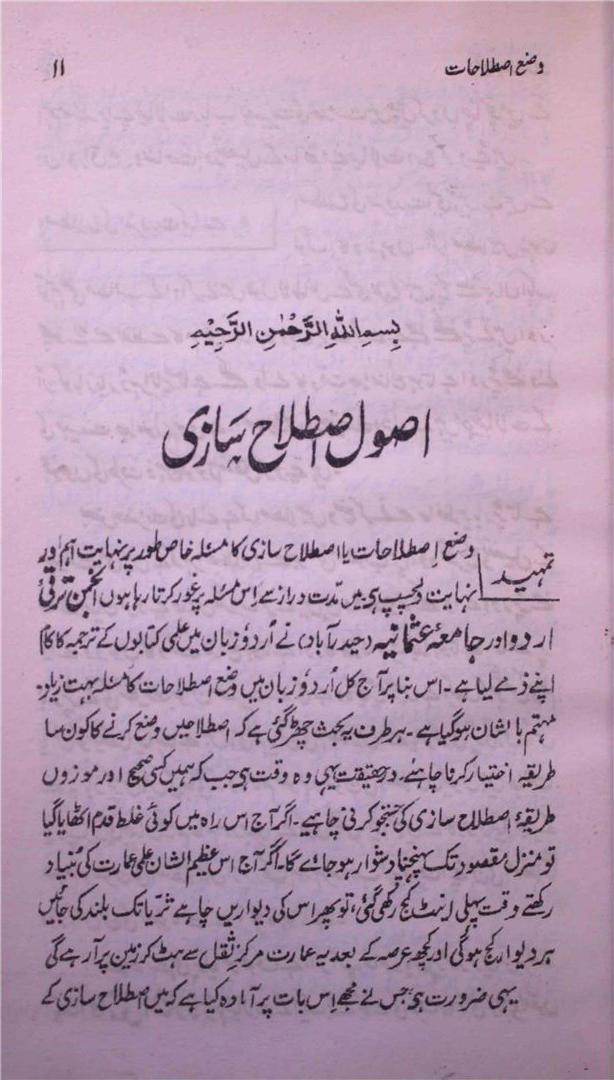 وضع اصطلاحات ۱۱
بِسمِ اللہِ الرَّحْمٰنِ الرَّحِیْمِ
اصول اصطلاح سازی
تمہید
وضع اِصطلاحات یا اصطلاح سازی کا مسئلہ خاص طور پر نہایت اہم اور
نہایت دلچسپ ہی۔ میں مدّت دراز سے اِس مسئلہ پر غور کرتا رہا ہوں انجمن ترقیٔ
اردو اور جامعۂ عثمانیہ (حیدرآباد) نے اُردوٗ زبان میں علمی کتابوں کے ترجمہ کا کام
اپنے ذمے لیا ہے۔ اس بنا پر آج کل اُردوٗ زبان میں وضع اصطلاحات کا مسئلہ بہت زیادہ
مہتم بالشان ہوگیا ہے۔ ہر طرف یہ بحث چھڑ گئی ہے کہ اصطلاحیں وضع کرنے کا کون سا
طریقہ اختیار کرنا چاہئے۔ درحقیقت یہی وہ وقت ہی جب کہ ہمیں کسی صحیح اور موزوں
طریقۂ اصطلاح سازی کی جستجو کرنی چاہیے۔ اگر آج اس راہ میں کوئی غلط قدم اٹھایا گیا
تو منزل مقصود تک پہنچنا دشوار ہوجائے گا۔ اگر آج اس عظیم الشان علمی عمارت کی بُنیاد
رکھتے وقت پہلی اینٹ کج رکھی گئی، تو پھر اس کی دیواریں چاہے ثریّا تک بلند کی جائیں
ہر دیوار کج ہوگی اور کچھ عرصہ کے بعد یہ عمارت مرکزِ ثقل سے ہٹ کر زمین پر آرہے گی
یہی ضرورت ہی جس نے مجھے اِس بات پر آمادہ کیا ہے کہ میں اصطلاح سازی کے